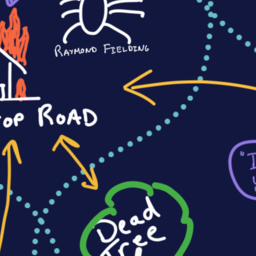 RAYMOND FIELDING
TOP ROAD
Dead
Tree